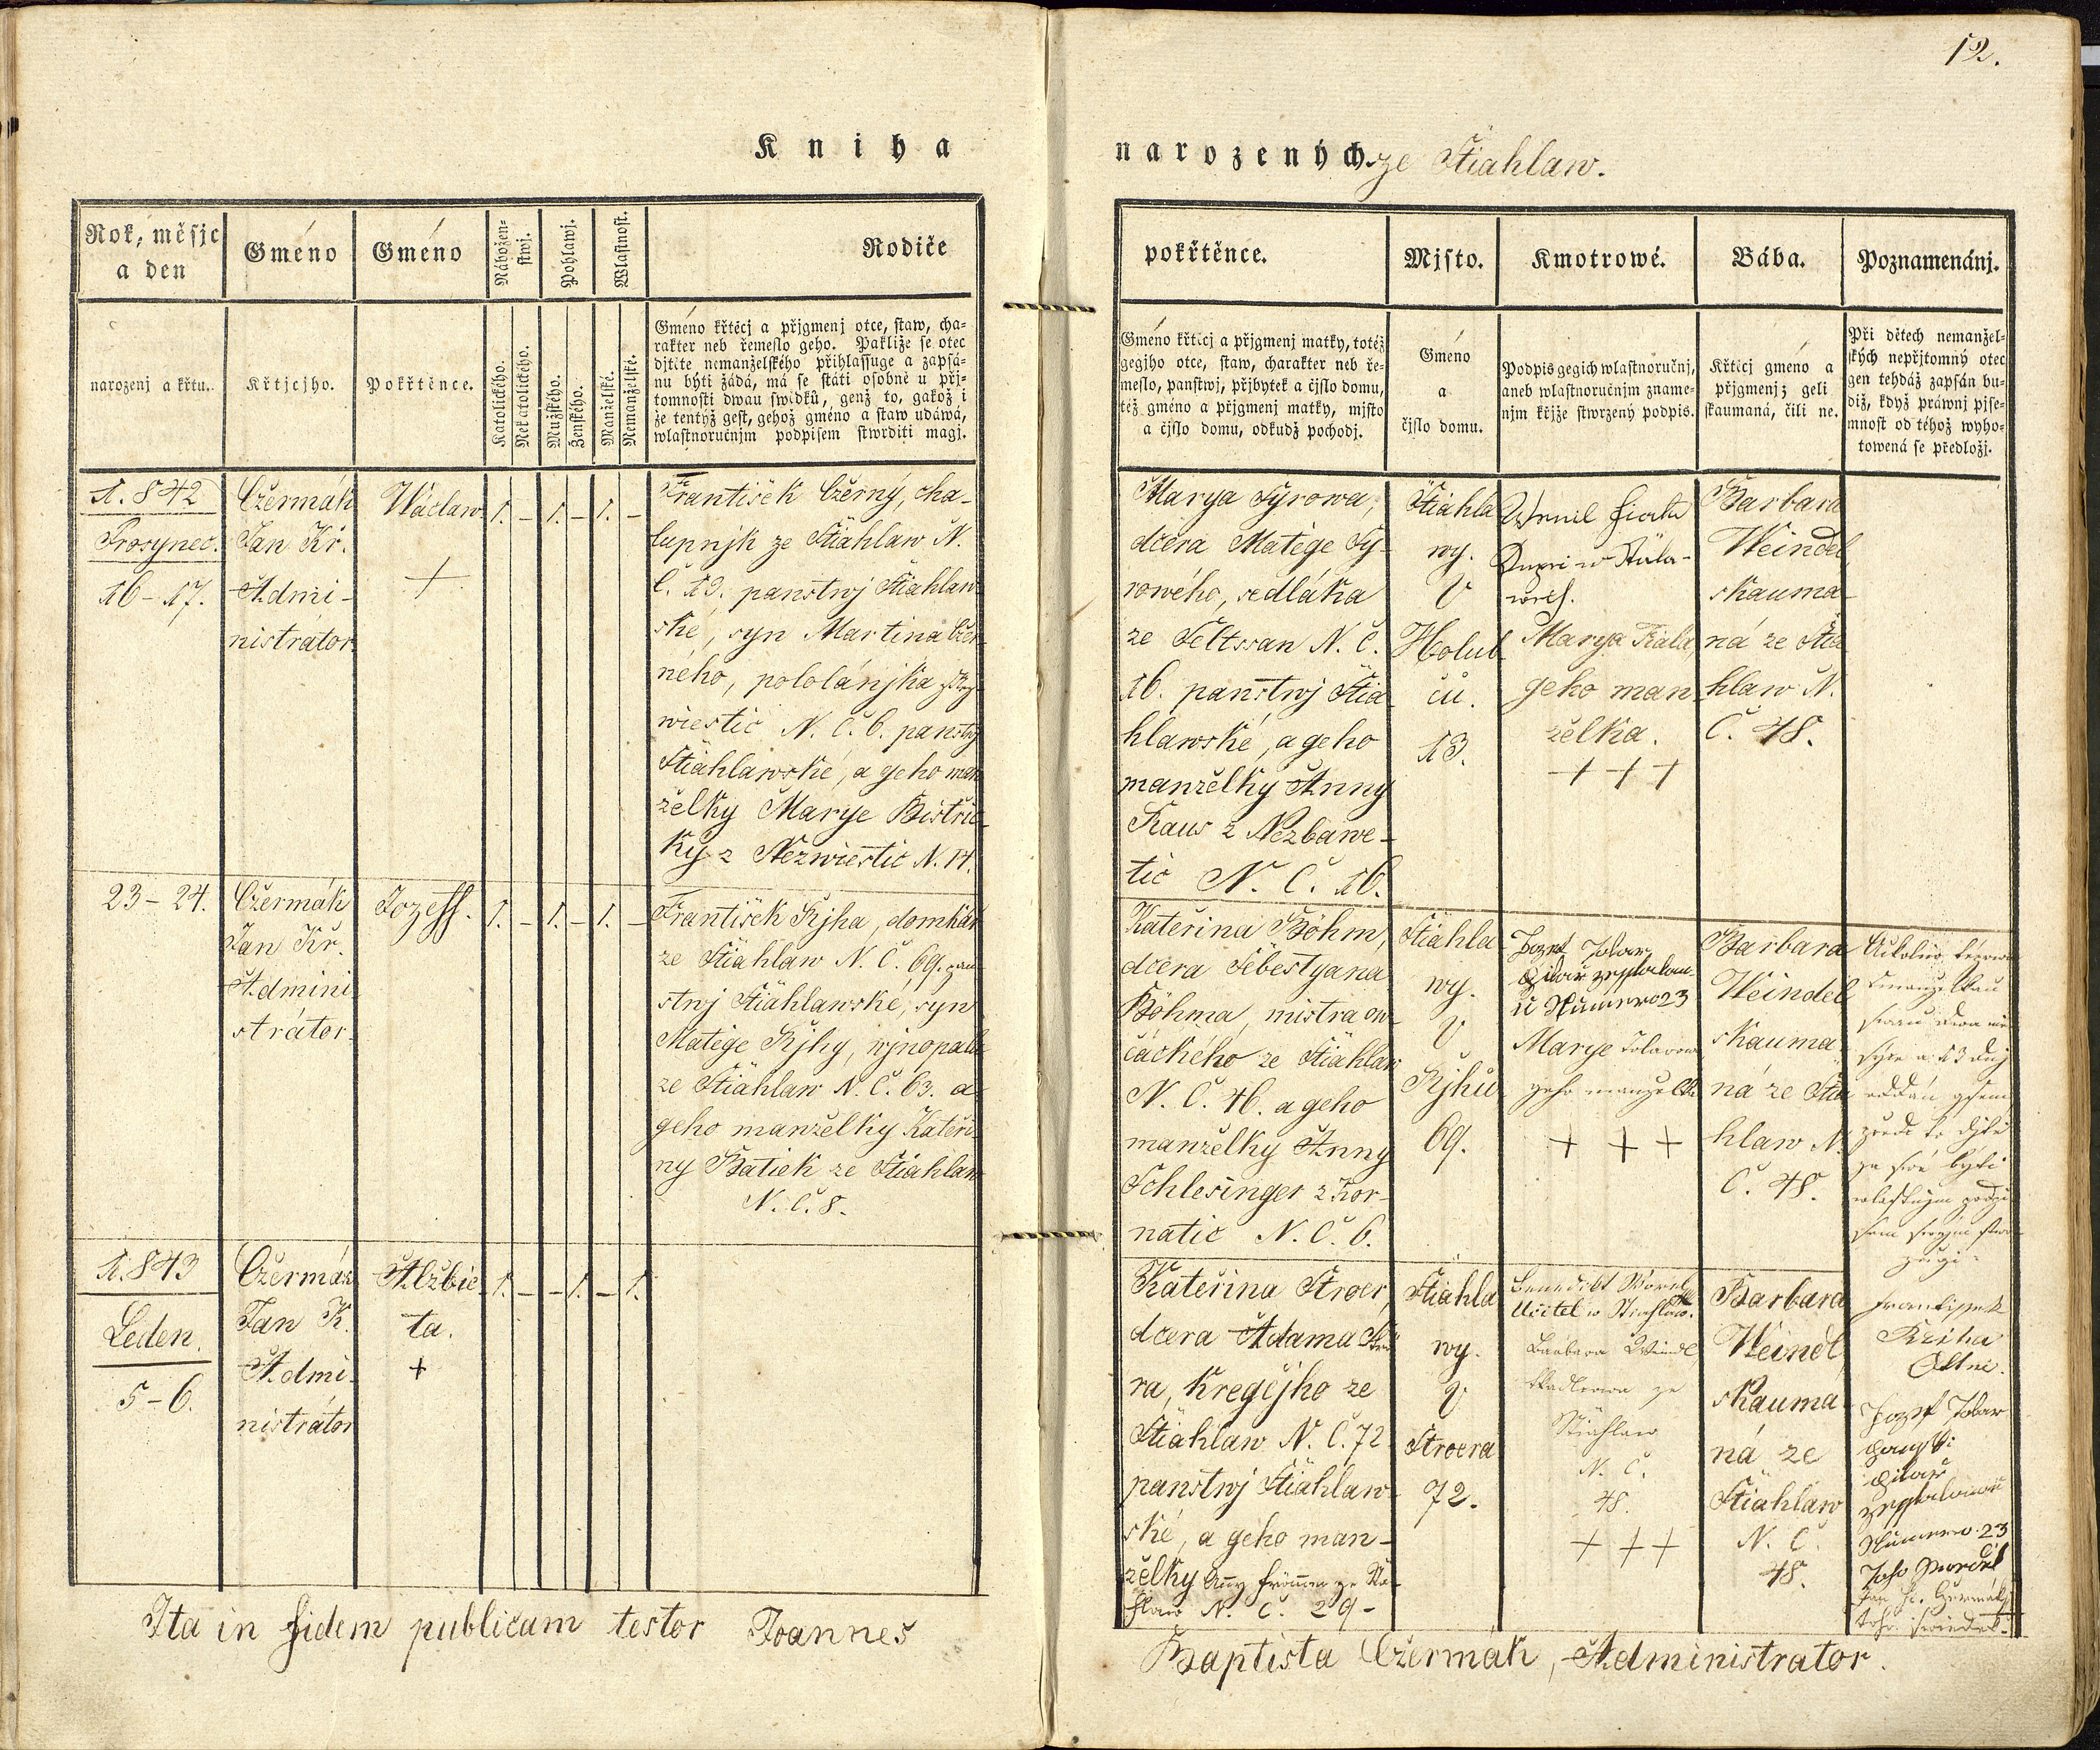 12.
Kniha
narozených ze Stiahlaw.
Rok, měsjc
a den
Gméno
Gméno
Nábožen-
stwj.
Pohlawj.
Wlastnost.
Rodiče
narozenj a křtu.
Křtjcjho.
Pokřtěnce.
Katolického.
Nekatolického.
Mužského.
Ženského.
Manželské.
Nemanželské.
Gméno křtěcj a přjgmenj otce, staw, cha-
rakter neb řemeslo geho. Pakliže se otec
djtěte nemanželského přihlassuge a zapsá-
nu býti žádá, má se státi osobně u přj-
tomnosti dwau swědků, genž to, gakož i
že tentýž gest, gehož gméno a staw udáwá,
wlastnoručnjm podpisem stwrditi magj.
1.842
Prosynec.
16-17.
Čzermák
Jan Kř.
Admi-
nistrátor.
Wáclaw
+
1. - 1. - 1. -
František Čzěrný, cha-
lupnjk ze Stiahlaw N.
Č. 13. panstwj Stiahlaw-
ské, syn Martina Čzer-
ného, pololánjka
wiestic N. Č. 6. panstwj
Stiahlawské, a geho man
želky Marye Bistřic-
ky z Nezwiestic N. 14.
23-24.
Čzermák
Jan Kř.
Admini
strátor.
Jozeff.
1. - 1. - 1. -
František Řjha, domkář
ze Stiahlaw N. Č. 69. pan-
stwj Stiahlawské, syn
Matěge Řjhy, wjnopala
ze Stiahlaw N. Č. 63. a
geho manželky Kateři-
ny Batiek ze Stiahlaw
N. Č. 8.
1.843
Leden.
5-6.
Čzermák
Jan K.
Admi-
nistrátor
Alžbie-
ta.
+
1. - - 1. - 1.
Ita in fidem publicam testor Joannes
pokřtěnce.
Mjsto.
Kmotrowé.
Bába.
Poznamenánj.
Gméno křtěcj a přjgmenj matky, totéž
gegjho otce, staw, charakter neb ře-
meslo, panstwj, přjbytek a čjslo domu,
též gméno a přjgmenj matky, mjsto
a čjslo domu, odkudž pocházj.
Gméno
a
čjslo domu.
Podpis gegich wlastnoručnj,
aneb wlastnoručnjm zname-
njm křjže stwrzený podpis.
Křtěcj gméno a
přjgmenj; geli
skaumaná, čili ne.
Při dětech nemanžel-
ských nepřjtomný otec
gen tehdáž zapsán bu-
diž, když práwnj pjse-
mnost od téhož wyho-
towená se předložj.
Marya Syrowa,
dcera Matěge Sy-
rowého, sedláka
ze Seltssan N. Č.
16. panstwj Stia-
hlawské, a geho
manželky Anny
Kaus z Nezbawe-
tic N. Č. 16.
Stiahla
wy.
U
Holub
čů.
13.
Marya Fiala,
geho man
želka.
+++
Barbara
Weindel
skauma-
ná ze Stia
hlaw N.
Č. 48.
Kateřina Böhm,
dcera Šebestyana
Böhma, mistra ow-
čáckého ze Stiahlaw
N. Č. 46. a geho
manželky Anny
Schlesinger z Kor-
natic N. Č. 6.
Stiahla
wy.
U
Řjhů
69.
Jozef Tolar
Numero 23
Marye Tolarowa
geho manželka
+ + +
Barbara
Weindel
skauma
ná ze Stia
hlaw N.
Č. 48.
Kateřina Stroer,
dcera Adama Strö
ra, kregčjho ze
Stiahlaw N. Č. 72.
panstwj Stiahlaw-
ské, a geho man-
želky
N. Č. 29-
Stiahla
wy.
U
Stroera
72.
Benedikt
Učitel w Stiahlaw.
Barbara Weindl
ze
Stiahlaw
N. Č.
48.
+++
Barbara
Weindl,
skauma
ná ze
Stiahlaw
N. Č.
48.
Frantissek
Řziha
Jozef Tolar
Numero 23
Baptista Čzermák, Administrator.